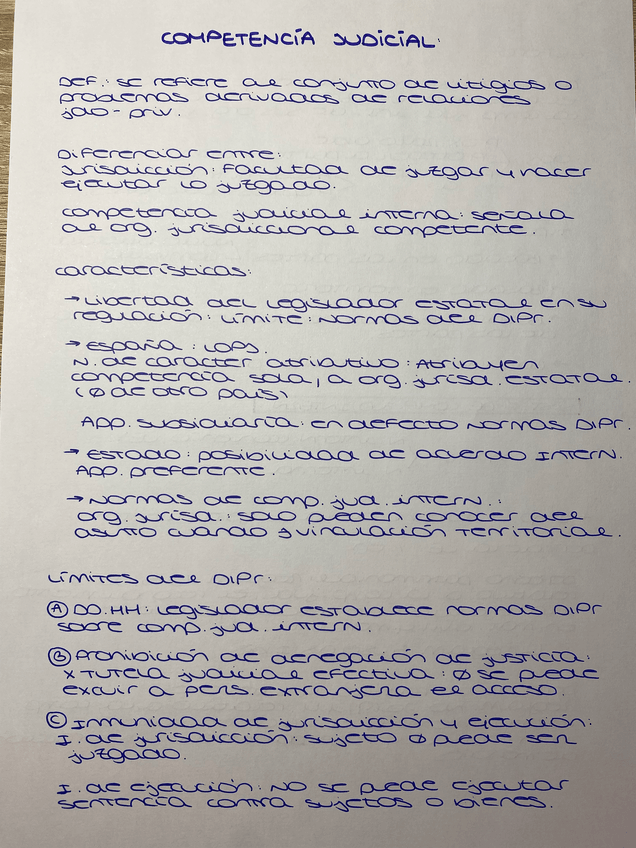 COMPETENCIA JUDICIAL:
DEF.: SE REFIERE AL CONJUNTO DE LITIGIOS O
PROBLEMAS DERIVADOS DE RELACIONES
JDO-PRIV.
DIFERENCIAR ENTRE:
JURISDICCIÓN: FACULTAD DE JUZGAR Y HACER
EJECUTAR LO JUZGADO.
COMPETENCIA JUDICIAL INTERNA: SEÑALA
AL ORG. JURISDICCIONAL COMPETENTE.
CARACTERÍSTICAS:
→ LIBERTAD DEL LEGISLADOR ESTATAL EN SU
REGULACIÓN: LÍMITE: NORMAS DEL DIPr.
→ ESPAÑA: LOPJ.
N. DE CARACTER ATRIBUTIVO: ATRIBUYEN
COMPETENCIA SOLA, A ORG. JURISD. ESTATAL.
(Ø DE OTRO PAÍS)
APP. SUBSIDIARIA: EN DEFECTO NORMAS DIPr.
→ ESTADO: POSIBILIDAD DE ACUERDO INTERN.
APP. PREFERENTE.
→ NORMAS DE COMP. JUD. INTERN.:
ORG. JURISD.: SOLO PUEDEN CONOCER DEL
ASUNTO CUANDO VINCULACIÓN TERRITORIAL.
LÍMITES DEL DIPr:
Ⓐ DD.HH: LEGISLADOR ESTABLECE NORMAS DIPr
SOBRE COMP. JUD. INTERN.
Ⓑ PROHIBICIÓN DE DENEGACIÓN DE JUSTICIA:
X TUTELA JUDICIAL EFECTIVA: Ø SE PUEDE
EXCUIR A PERS. EXTRANJERA EL ACCESO.
Ⓒ INMUNIDAD DE JURISDICCIÓN Y EJECUCIÓN:
I. DE JURISDICCIÓN: SUJETO Ø PUEDE SER
JUZGADO.
I. DE EJECUCIÓN: NO SE PUEDE EJECUTAR
SENTENCIA CONTRA SUJETOS O BIENES.